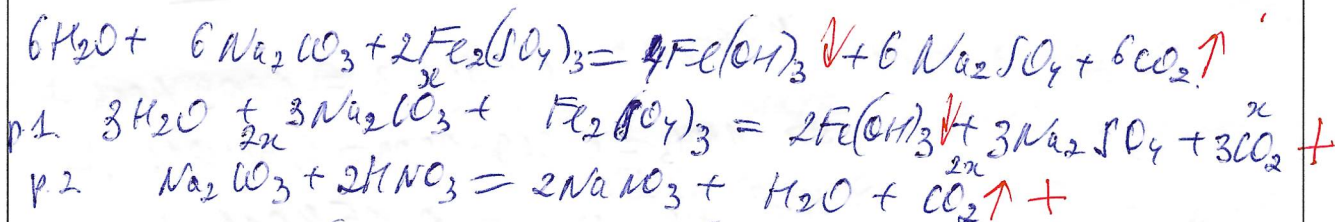 6H₂O + 6Na₂CO₃ + 2Fe₂(SO₄)₃ = 4Fe(OH)₃↓ + 6Na₂SO₄ + 6CO₂↑
x
р1. 3H₂O + 3Na₂CO₃ + Fe₂(SO₄)₃ = 2Fe(OH)₃↓ + 3Na₂SO₄ + 3CO₂ +
2x 2x x
р.2 Na₂CO₃ + 2HNO₃ = 2NaNO₃ + H₂O + CO₂↑ +